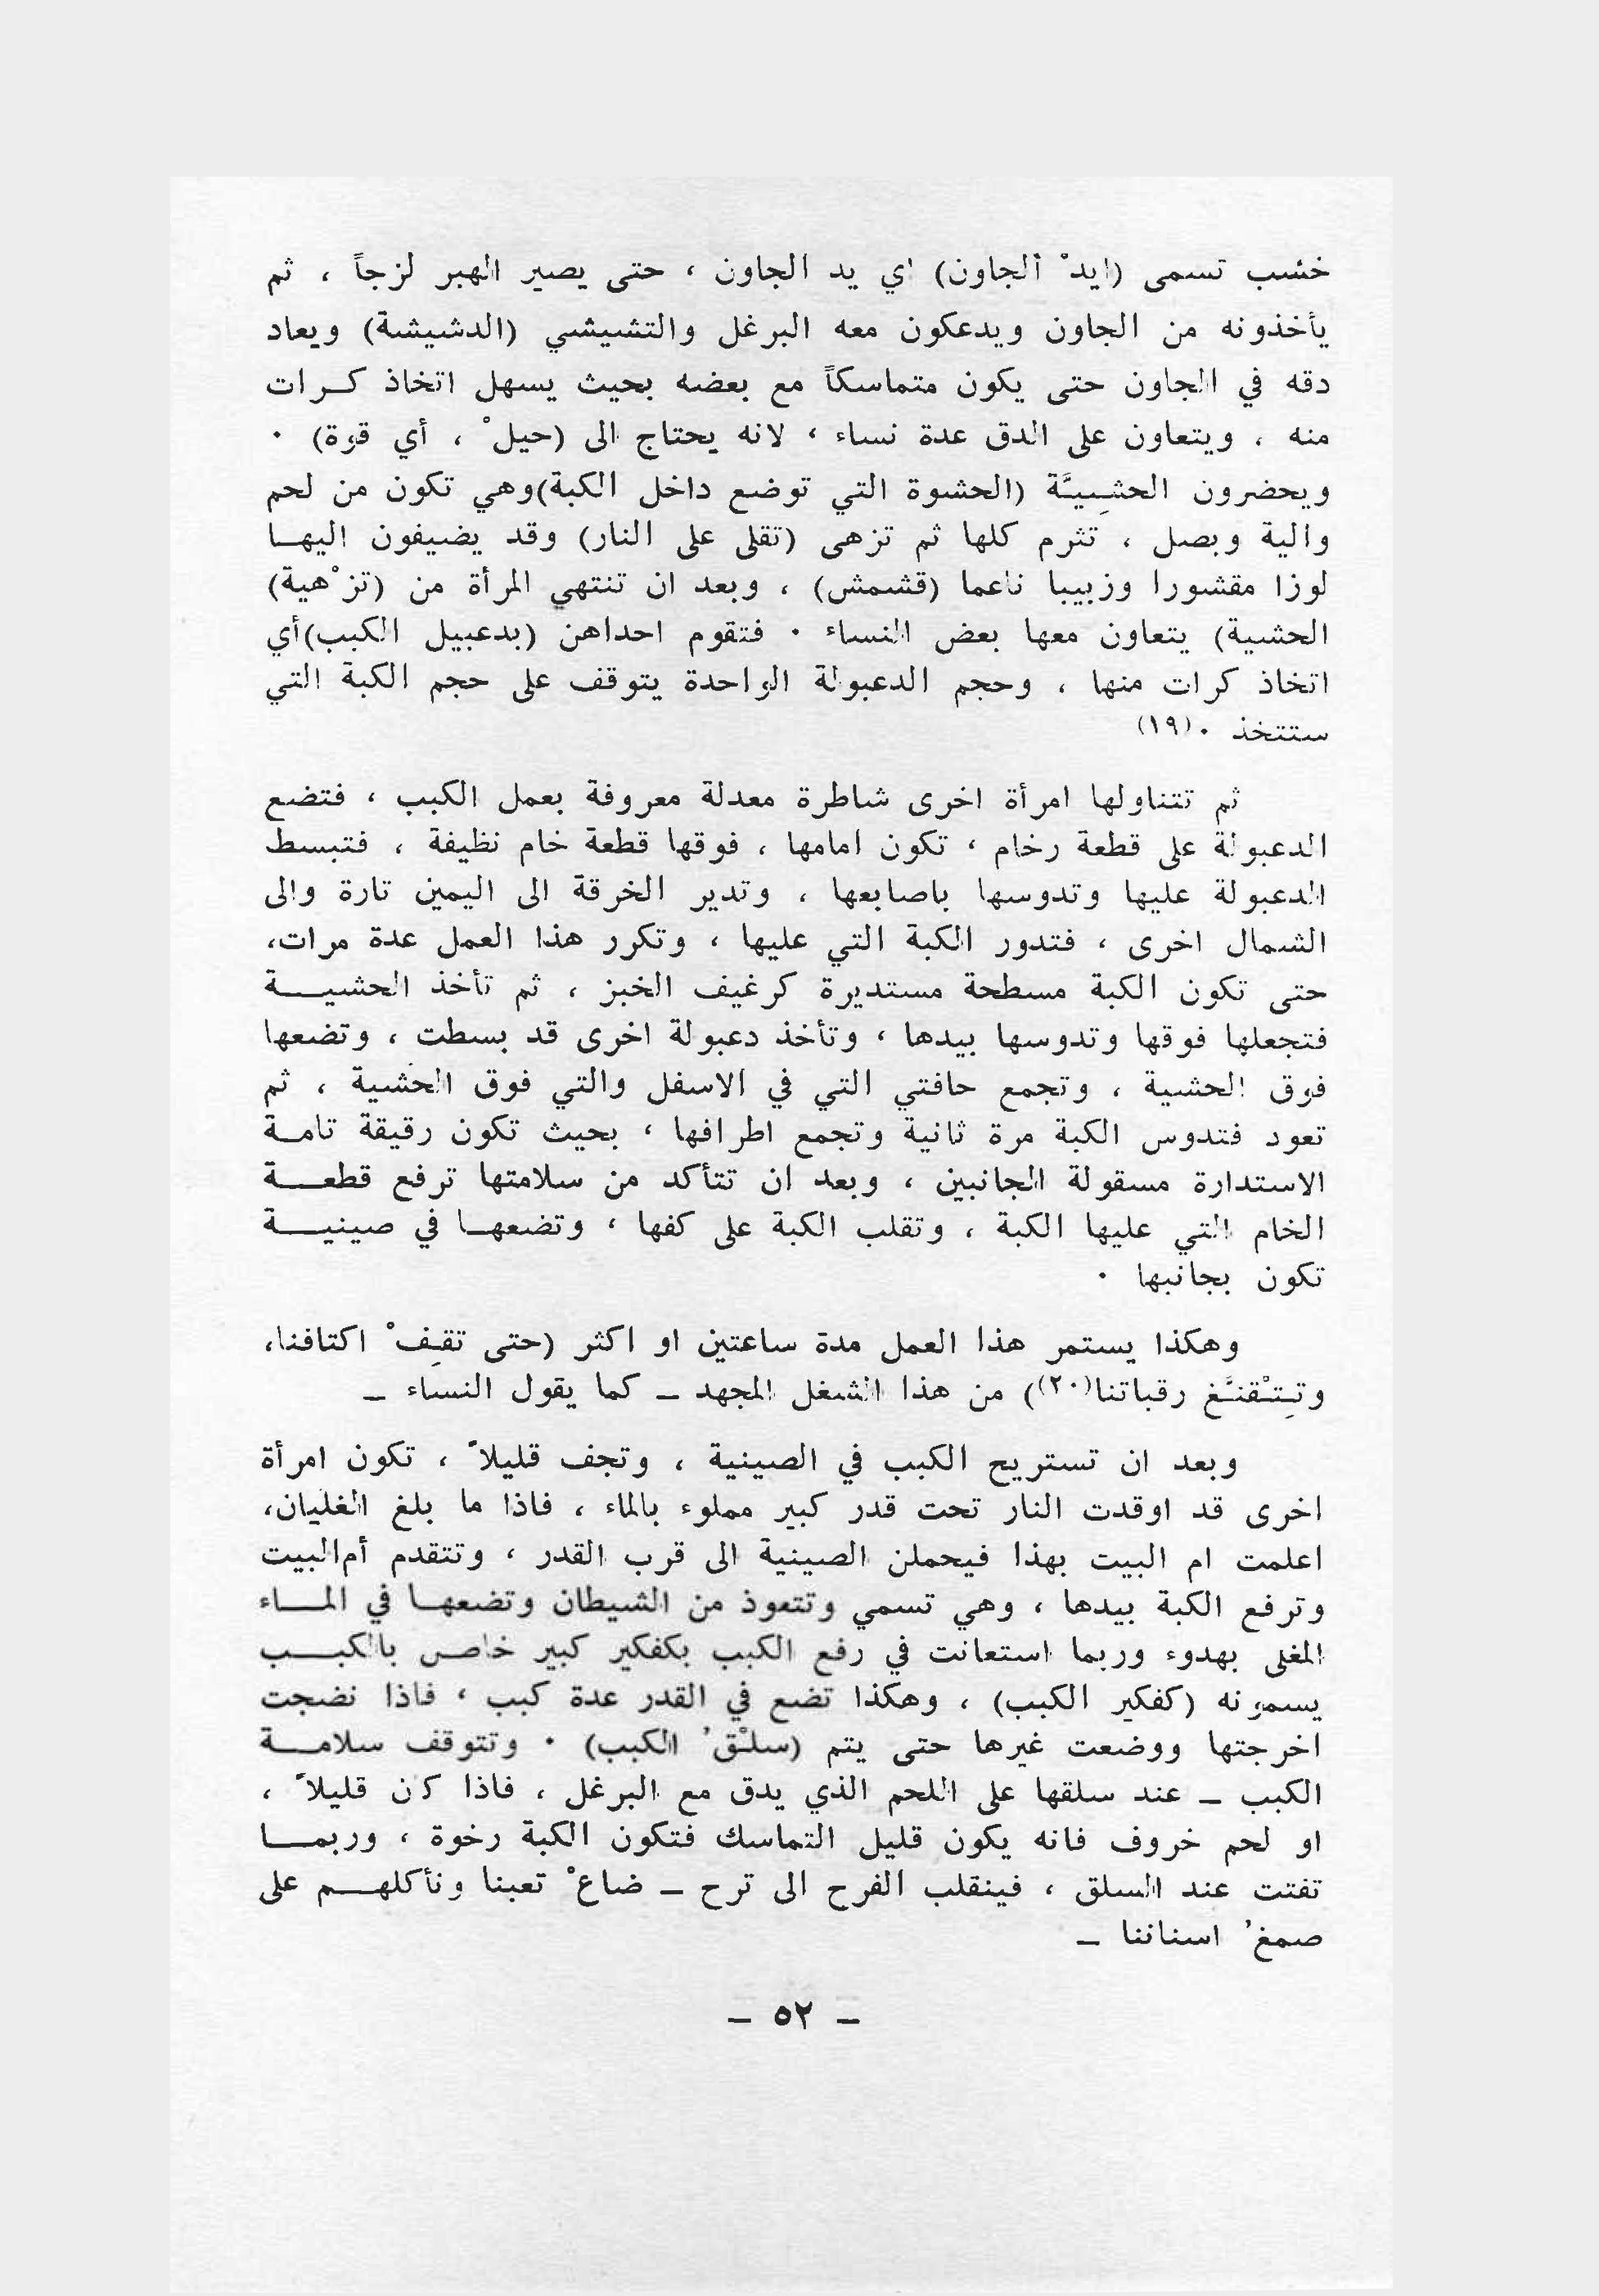 خشب تسمى (ايدْ ألجاون) اي يد الجاون ، حتى يصير الهبر لزجاً ، ثم
يأخذونه من الجاون ويدعكون معه البرغل والتشيشي (الدشيشة) ويعاد
دقه في الجاون حتى يكون متماسكاً مع بعضه بحيث يسهل اتخاذ كـرات
منه ، ويتعاون على الدق عدة نساء ، لانه يحتاج الى (حيلْ ، أي قوة) ٠
ويحضرون الحشِيـَّة (الحشوة التي توضع داخل الكبة)وهي تكون من لحم
والية وبصل ، تثرم كلها ثم تزهى (تقلى على النار) وقد يضيفون اليهـا
لوزا مقشورا وزبيبا ناعما (قشمش) ، وبعد ان تنتهي المرأة من (تزْهية)
الحشية) يتعاون معها بعض النساء ٠ فتقوم احداهن (بدعبيل الكبب)أي
اتخاذ كرات منها ، وحجم الدعبولة الواحدة يتوقف على حجم الكبة التي
ستتخذ ٠(١٩)
ثم تتناولها امرأة اخرى شاطرة معدلة معروفة بعمل الكبب ، فتضع
الدعبولة على قطعة رخام ، تكون امامها ، فوقها قطعة خام نظيفة ، فتبسط
الدعبولة عليها وتدوسها باصابعها ، وتدير الخرقة الى اليمين تارة والى
الشمال اخرى ، فتدور الكبة التي عليها ، وتكرر هذا العمل عدة مرات،
حتى تكون الكبة مسطحة مستديرة كرغيف الخبز ، ثم تأخذ الحشيـــة
فتجعلها فوقها وتدوسها بيدها ، وتأخذ دعبولة اخرى قد بسطت ، وتضعها
فوق الحشية ، وتجمع حافتي التي في الاسفل والتي فوق الحشية ، ثم
تعود فتدوس الكبة مرة ثانية وتجمع اطرافها ، بحيث تكون رقيقة تامـة
الاستدارة مسقولة الجانبين ، وبعد ان تتأكد من سلامتها ترفع قطعـــة
الخام التي عليها الكبة ، وتقلب الكبة على كفها ، وتضعهـا في صينيـــة
تكون بجانبها ٠
وهكذا يستمر هذا العمل مدة ساعتين او اكثر (حتى تقِفْ اكتافنا،
وتِتـْقنـَّغ رقباتنا(٢٠)) من هذا الشغل المجهد ـ كما يقول النساء ـ
وبعد ان تستريح الكبب في الصينية ، وتجف قليلاً ، تكون امرأة
اخرى قد اوقدت النار تحت قدر كبير مملوء بالماء ، فاذا ما بلغ الغليان،
اعلمت ام البيت بهذا فيحملن الصينية الى قرب القدر ، وتتقدم أم البيت
وترفع الكبة بيدها ، وهي تسمي وتتعوذ من الشيطان وتضعهـا في المــاء
المغلى بهدوء وربما استعانت في رفع الكبب بكفكير كبير خاص بالكبـــب
يسمونه (كفكير الكبب) ، وهكذا تضع في القدر عدة كبب ، فاذا نضجت
اخرجتها ووضعت غيرها حتى يتم (سلـْقُ الكبب) ٠ وتتوقف سلامـــة
الكبب ـ عند سلقها على اللحم الذي يدق مع البرغل ، فاذا كان قليلاً ،
او لحم خروف فانه يكون قليل التماسك فتكون الكبة رخوة ، وربمـــا
تفتت عند السلق ، فينقلب الفرح الى ترح ـ ضاعْ تعبنا ونأكلهـــم على
صمغُ اسناننا ـ
ـ ٥٢ ـ